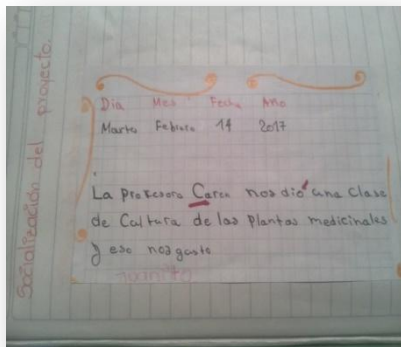 Socialización del proyecto.
Dia Mes Fecha Año
Martes Febrero 14 2017
La profesora Caren nos dió una clase
de Cultura de las plantas medicinales
y eso nos gusto